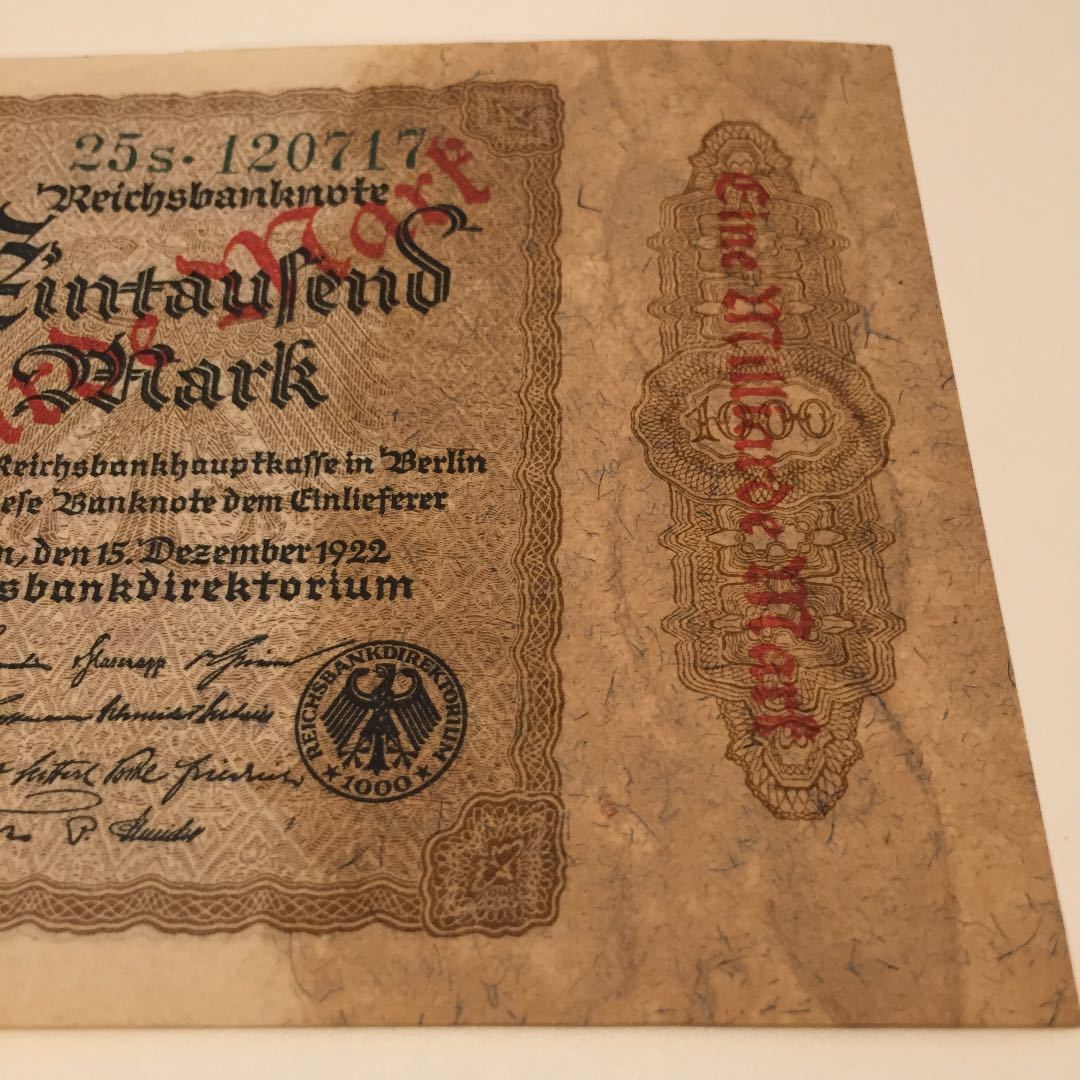 25s · 120717
Reichsbanknote
Eintausend
Mark
Mark
Reichsbankhauptkasse in Berlin
ese Banknote dem Einlieferer
n, den 15. Dezember 1922
sbankdirektorium
REICHSBANKDIREKTORIUM
1000
1000
Eine Milliarde Mark